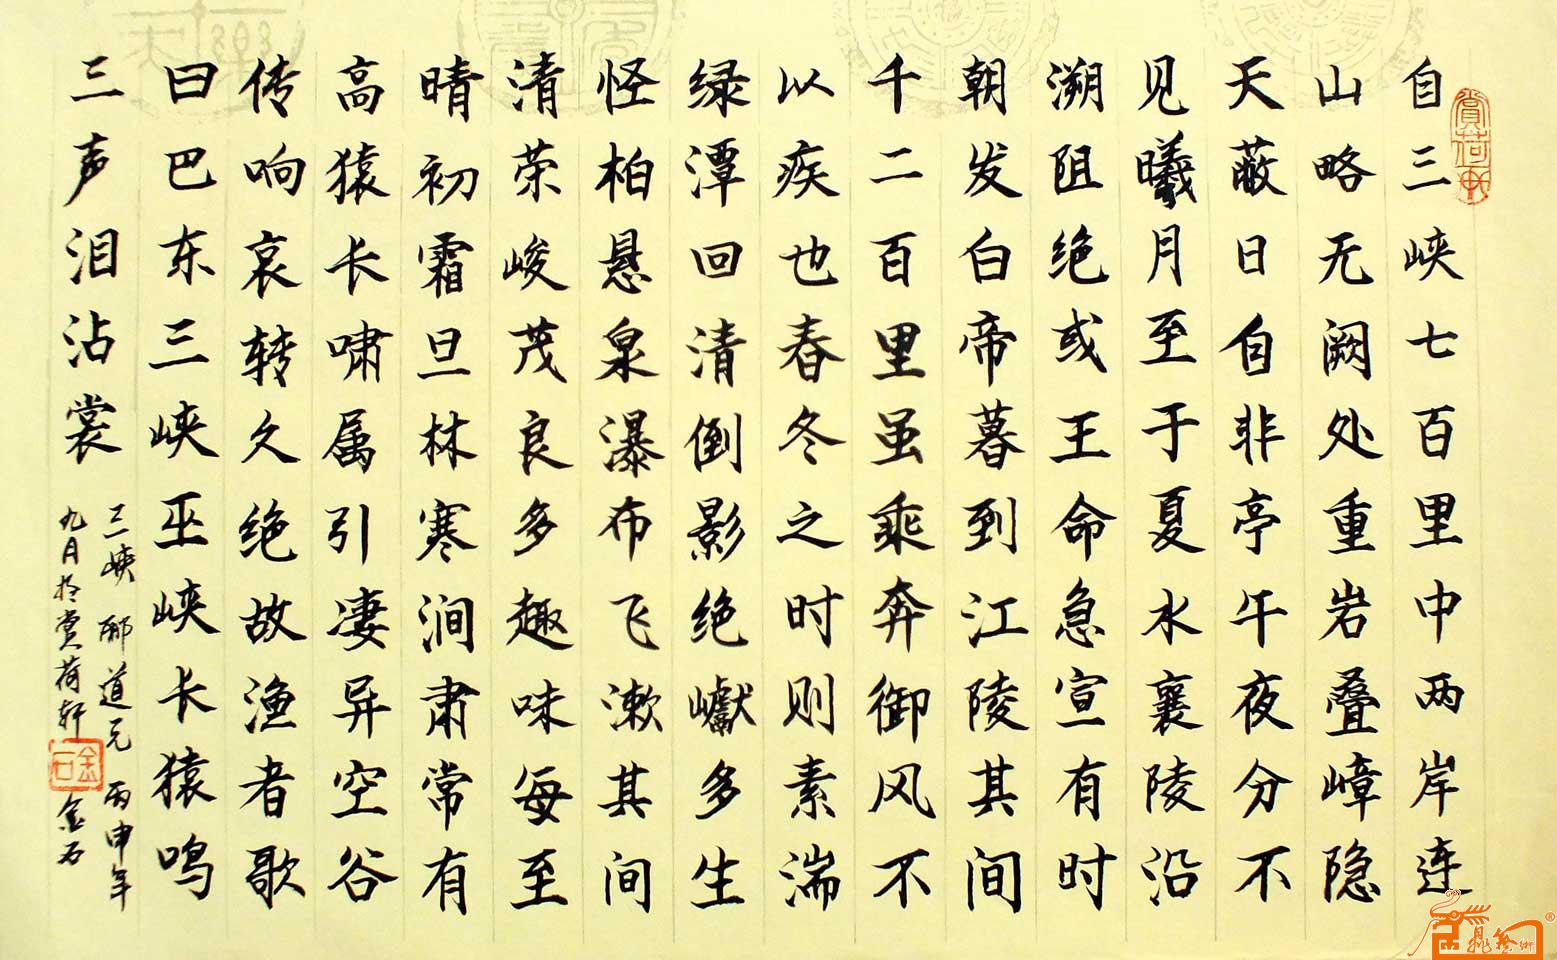 賞荷轩
自三峡七百里中两岸连
山略无阙处重岩叠嶂隐
天蔽日自非亭午夜分不
见曦月至于夏水襄陵沿
溯阻绝或王命急宣有时
朝发白帝暮到江陵其间
千二百里虽乘奔御风不
以疾也春冬之时则素湍
绿潭回清倒影绝巘多生
怪柏悬泉瀑布飞漱其间
清荣峻茂良多趣味每至
晴初霜旦林寒涧肃常有
高猿长啸属引凄异空谷
传响哀转久绝故渔者歌
曰巴东三峡巫峡长猿鸣
三声泪沾裳
三峡 郦道元 丙申年
九月於赏荷轩 金石
金石